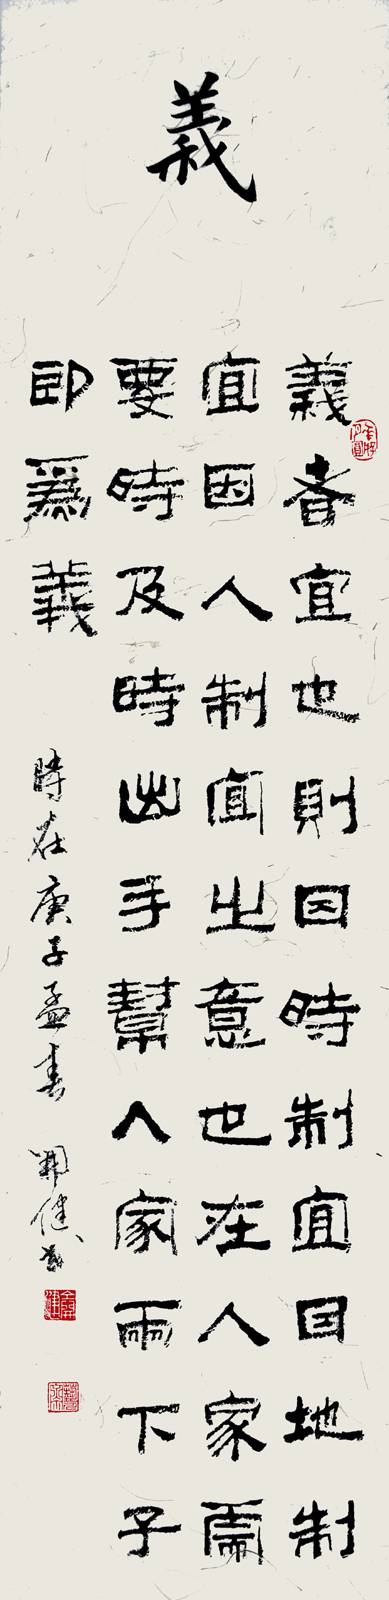 義
義者宜也則因時制宜因地制
宜因人制宜之意也在人家需
要時及時出手幫人家兩下子
即爲義
時在庚子孟春 開健